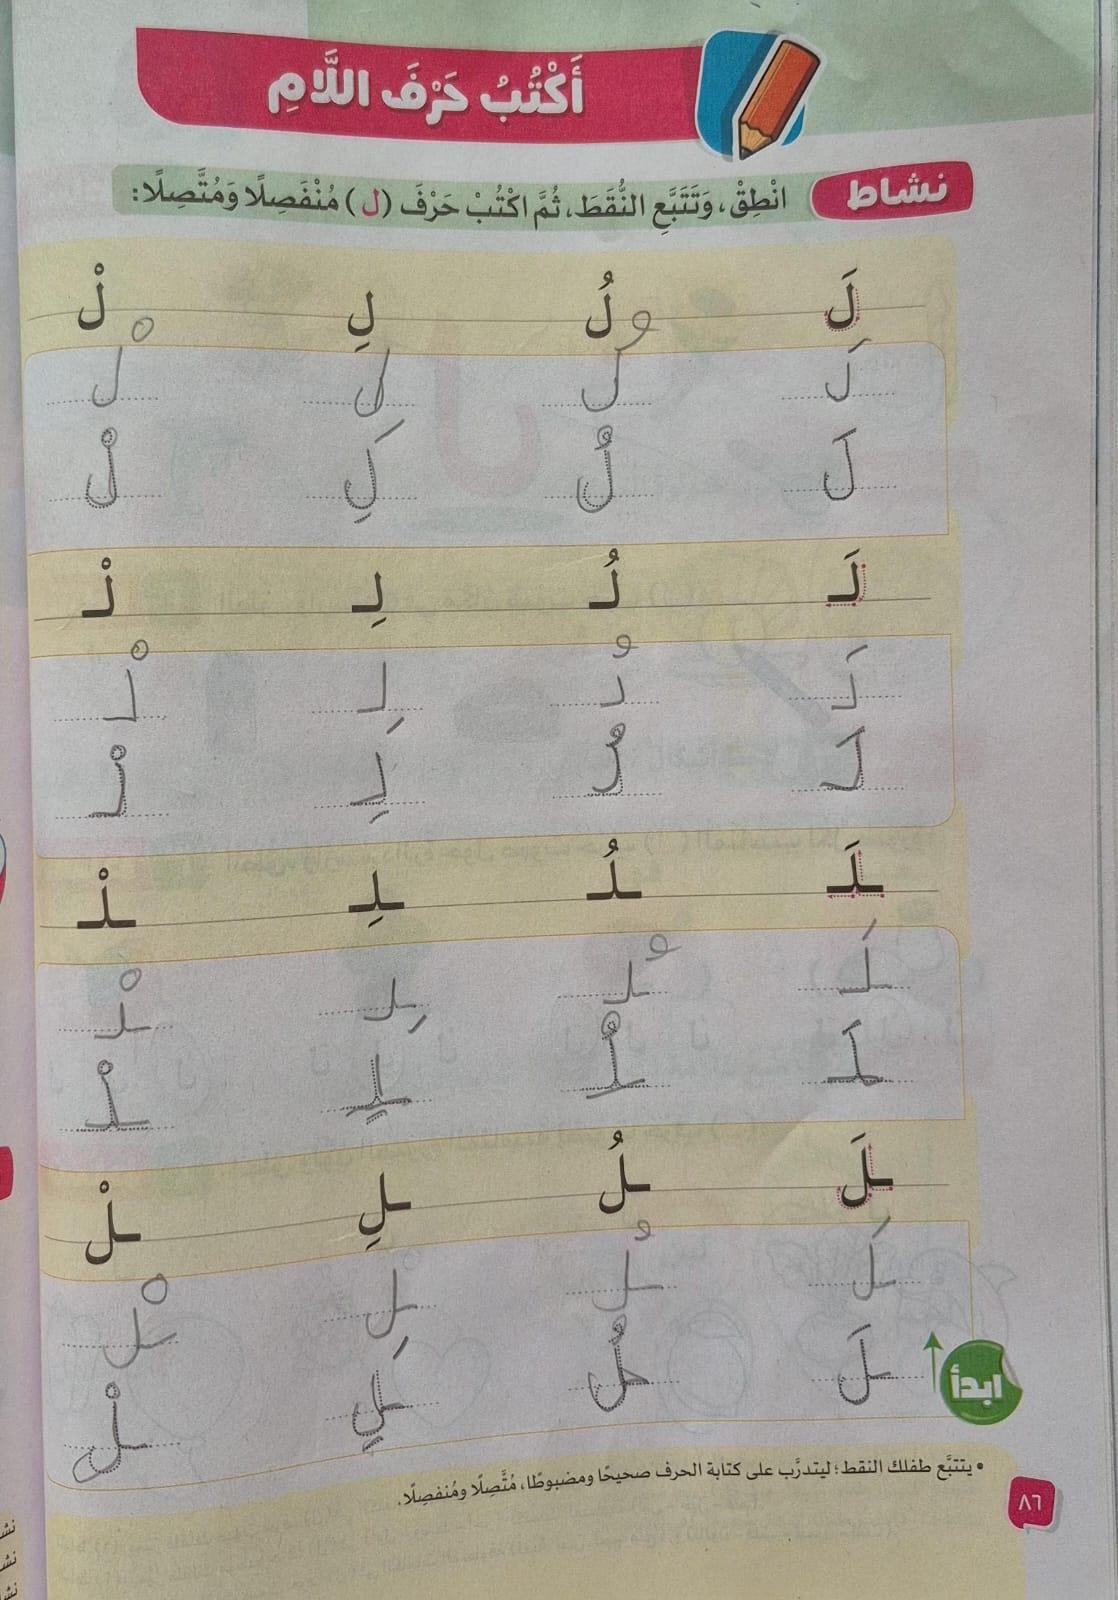 أَكْتُبُ حَرْفَ اللَّامِ
نشاط انْطِقْ، وَتَتَبَّعِ النُّقَطَ، ثُمَّ اكْتُبْ حَرْفَ (ل) مُنْفَصِلًا وَمُتَّصِلًا:
لَ لُ لِ لْ
لَ لُ لِ لْ
لَ لُ لِ لْ
لَـ لُـ لِـ لْـ
لَـ لُـ لِـ لْـ
لَـ لُـ لِـ لْـ
ـلَـ ـلُـ ـلِـ ـلْـ
ـلَـ ـلُـ ـلِـ ـلْـ
ـلَـ ـلُـ ـلِـ ـلْـ
ـلَ ـلُ ـلِ ـلْ
ـلَ ـلُ ـلِ ـلْ
ـلَ ـلُ ـلِ ـلْ
ابدأ
• يتتبَّع طفلك النقط؛ ليتدرَّب على كتابة الحرف صحيحًا ومضبوطًا، مُتَّصِلًا ومُنفصِلًا.
٨٦